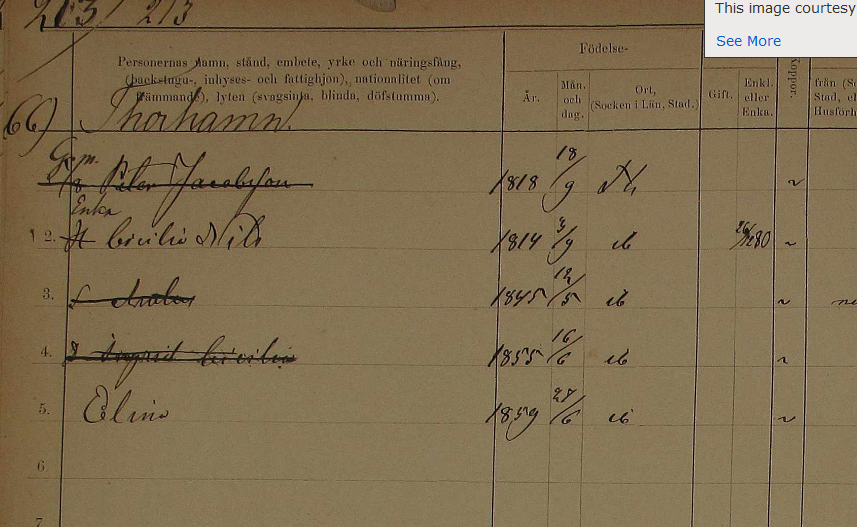 This image courtesy
See More
213 / 213
Personernas namn, stånd, embete, yrke och näringsfång,
(backstugu-, inhyses- och fattighjon), nationalitet (om
främmande), lyten (svagsinta, blinda, döfstumma).
Födelse-
År.
Mån.
och
dag.
Ort,
(Socken i Län, Stad.)
Gift.
Enkl.
eller
Enka.
Koppor.
från (So
Stad, el
Husförh
66) Thorhamn.
Peter Jacobsson 1818 18/9 Th
Enka
2. H Cicilia Nils 1814 3/9 d 80
3. 1845 12/5 d
4. Ingrid Cicilia 1855 16/6 d
5. Elina 1859 27/6 d
6
7